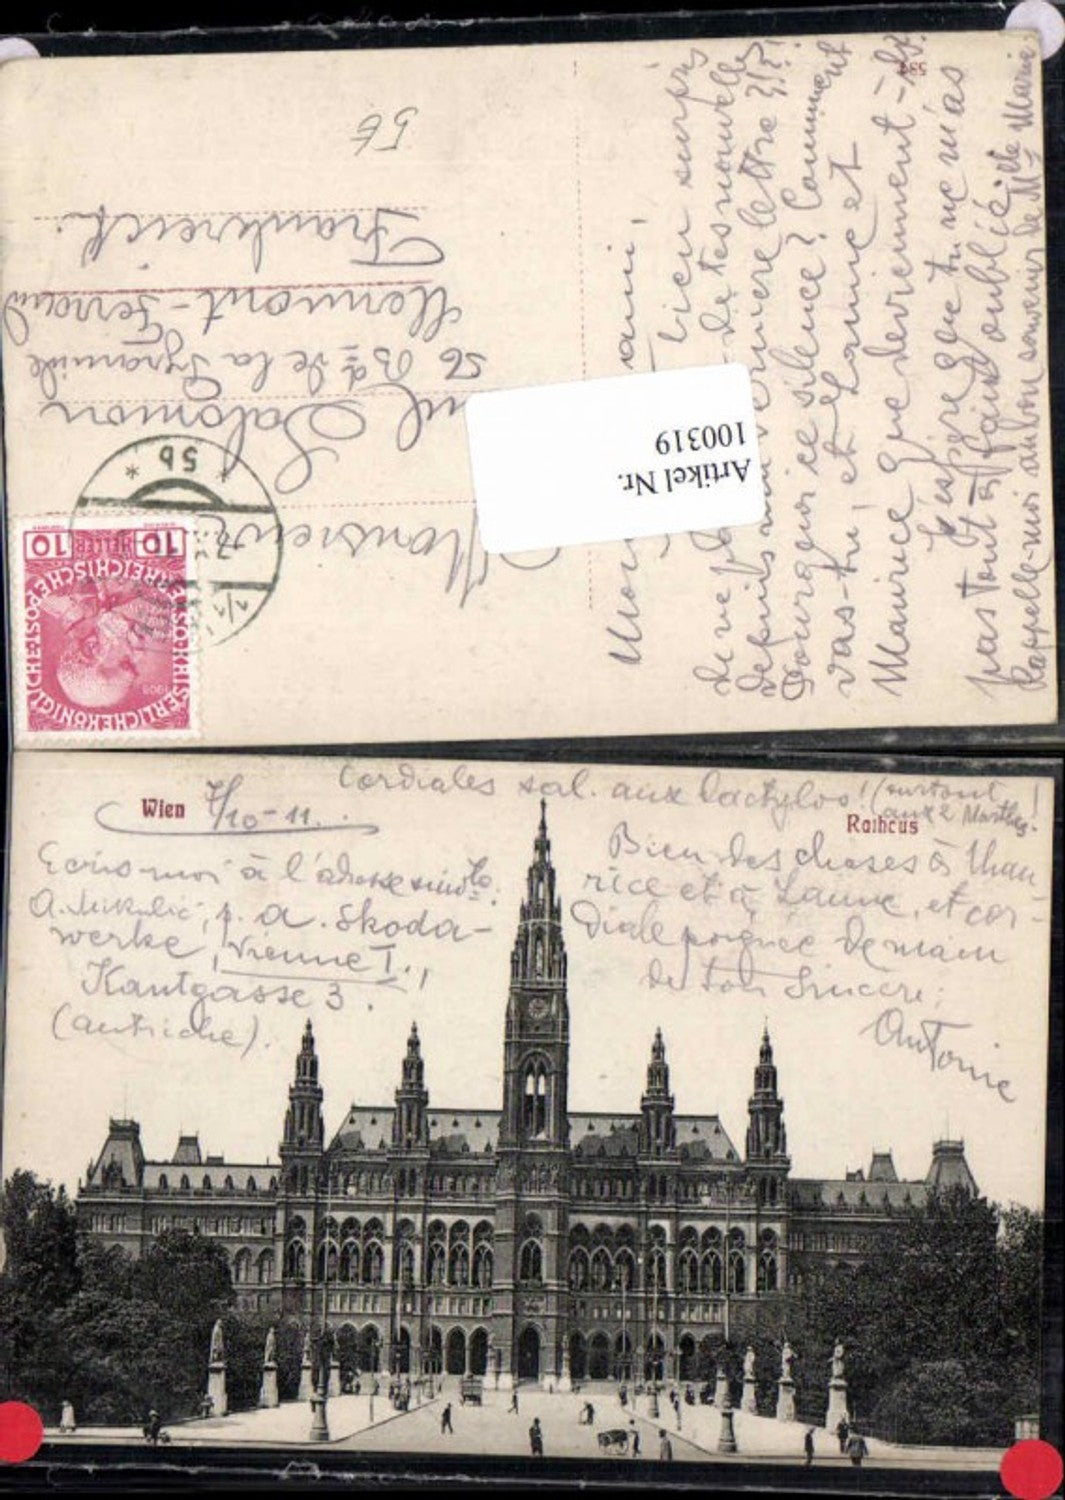 534
Mon ami,
bien surpris
de ne pas de tes nouvelles
depuis mon lettre ?!?!
Pourquoi ce silence? Comment
vas-tu, et Laure et
Maurice que deviennent-ils?
J'espère que tu ne m'as
pas tout à fait oublié,
Rappelle-moi au bon souvenir de Mlle Marie
Monsieur
Salomon
56 Bd de la Pyramide
Clermont-Ferrand
Frankreich.
56
Artikel Nr.
100319
10 HELLER 10
KAISERLICHEKÖNIGLICHE ÖSTERREICHISCHE POST
1908
5b
Cordiales sal. aux dactylos! (surtout
aux 2 Marthes!
Wien 7/10-11.
Rathaus
Ecris-moi à l'adresse
A. Mikulić, p. a. Skoda-
werke, Vienne I.,
Kantgasse 3.
(Autriche).
Bien des choses à Mau
rice et à Laure, et cor-
diale poignée de main
de ton sincère:
Antoine